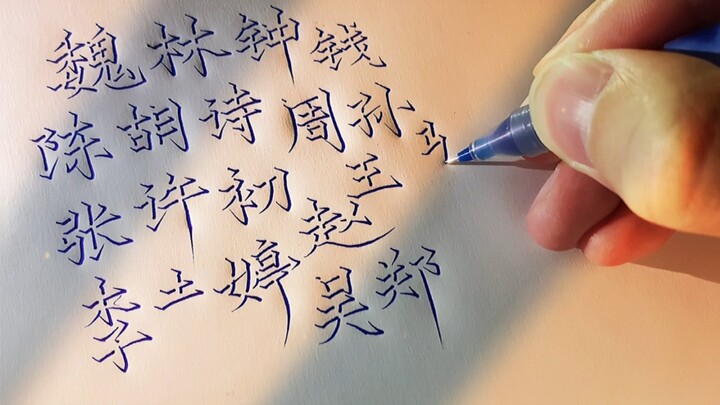 魏林钟钱
陈胡诗周孙
张许初赵王
李士婷吴郑